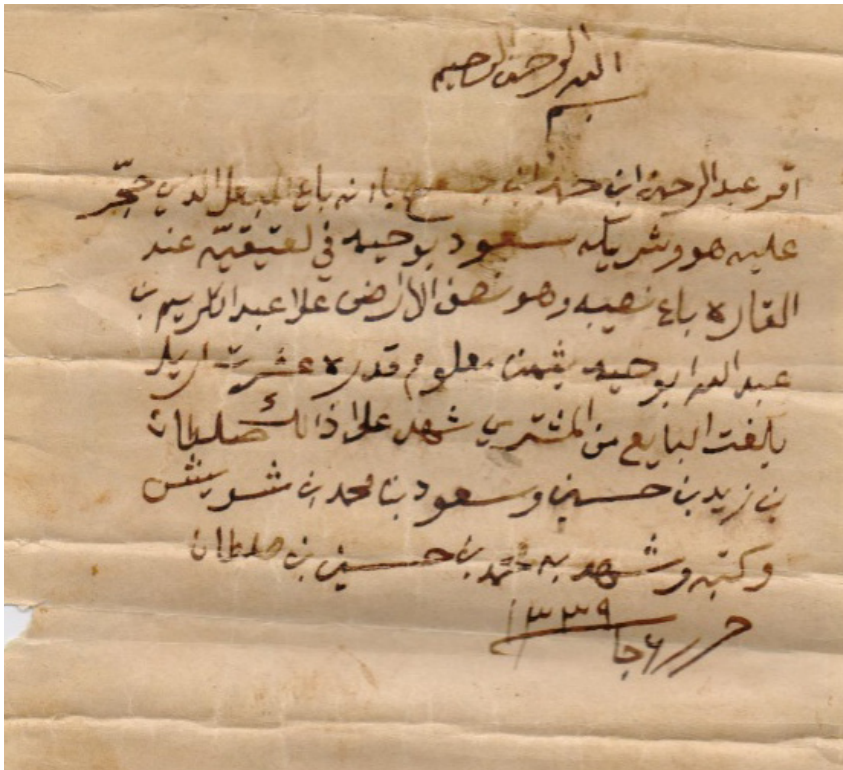 بسم الله الرحمن الرحيم
اقر عبد الرحمن ابن حمد ابن باانه باع البعل الذي حجر
عليه هو وشريكه سعود بوحيد في لعتيقيه عند
القاره باع نصيبه وهو نصف الاارض علا عبد الكريم ب
عبد الله ابوحيد بثمن معلوم قدره عشرت اريل
بلغت البايع من المشتري شهد علا ذالك صلطان
بن زيد بن حسين وسعود بن محمد بن شويش
وكتبه وشهد به محمد بن حسين بن صلطان
حرر ٦ جا ١٣٣٩